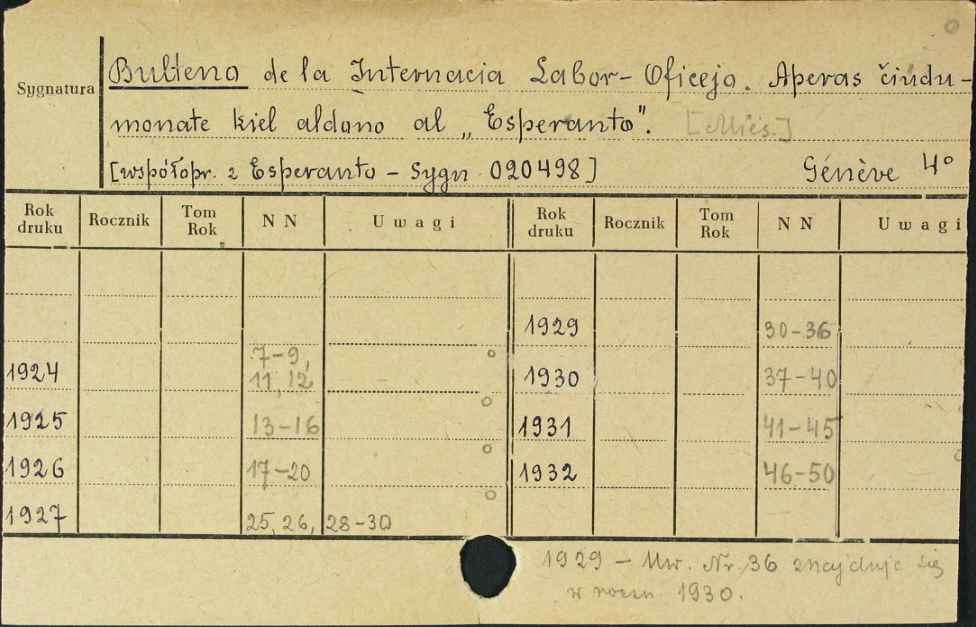 Sygnatura
Bulteno de la Internacia Labor-Oficejo. Aperas ĉiudu-
monate kiel aldono al „Esperanto". [Mies.]
[współopr. z Esperanto - Sygn 020498] Génève 4°
Rok druku Rocznik Tom Rok N N Uwagi Rok druku Rocznik Tom Rok N N Uwagi
1929 30-36
7-9,
1924 11, 12 1930 37-40
1925 13-16 1931 41-45
1926 17-20 1932 46-50
1927 25, 26, 28-30
1929 - Uw. Nr. 36 znajduje się
w roczn. 1930.